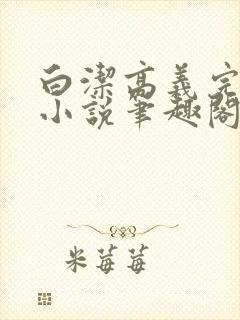 白潔高義完
小說筆趣閣
米莓莓